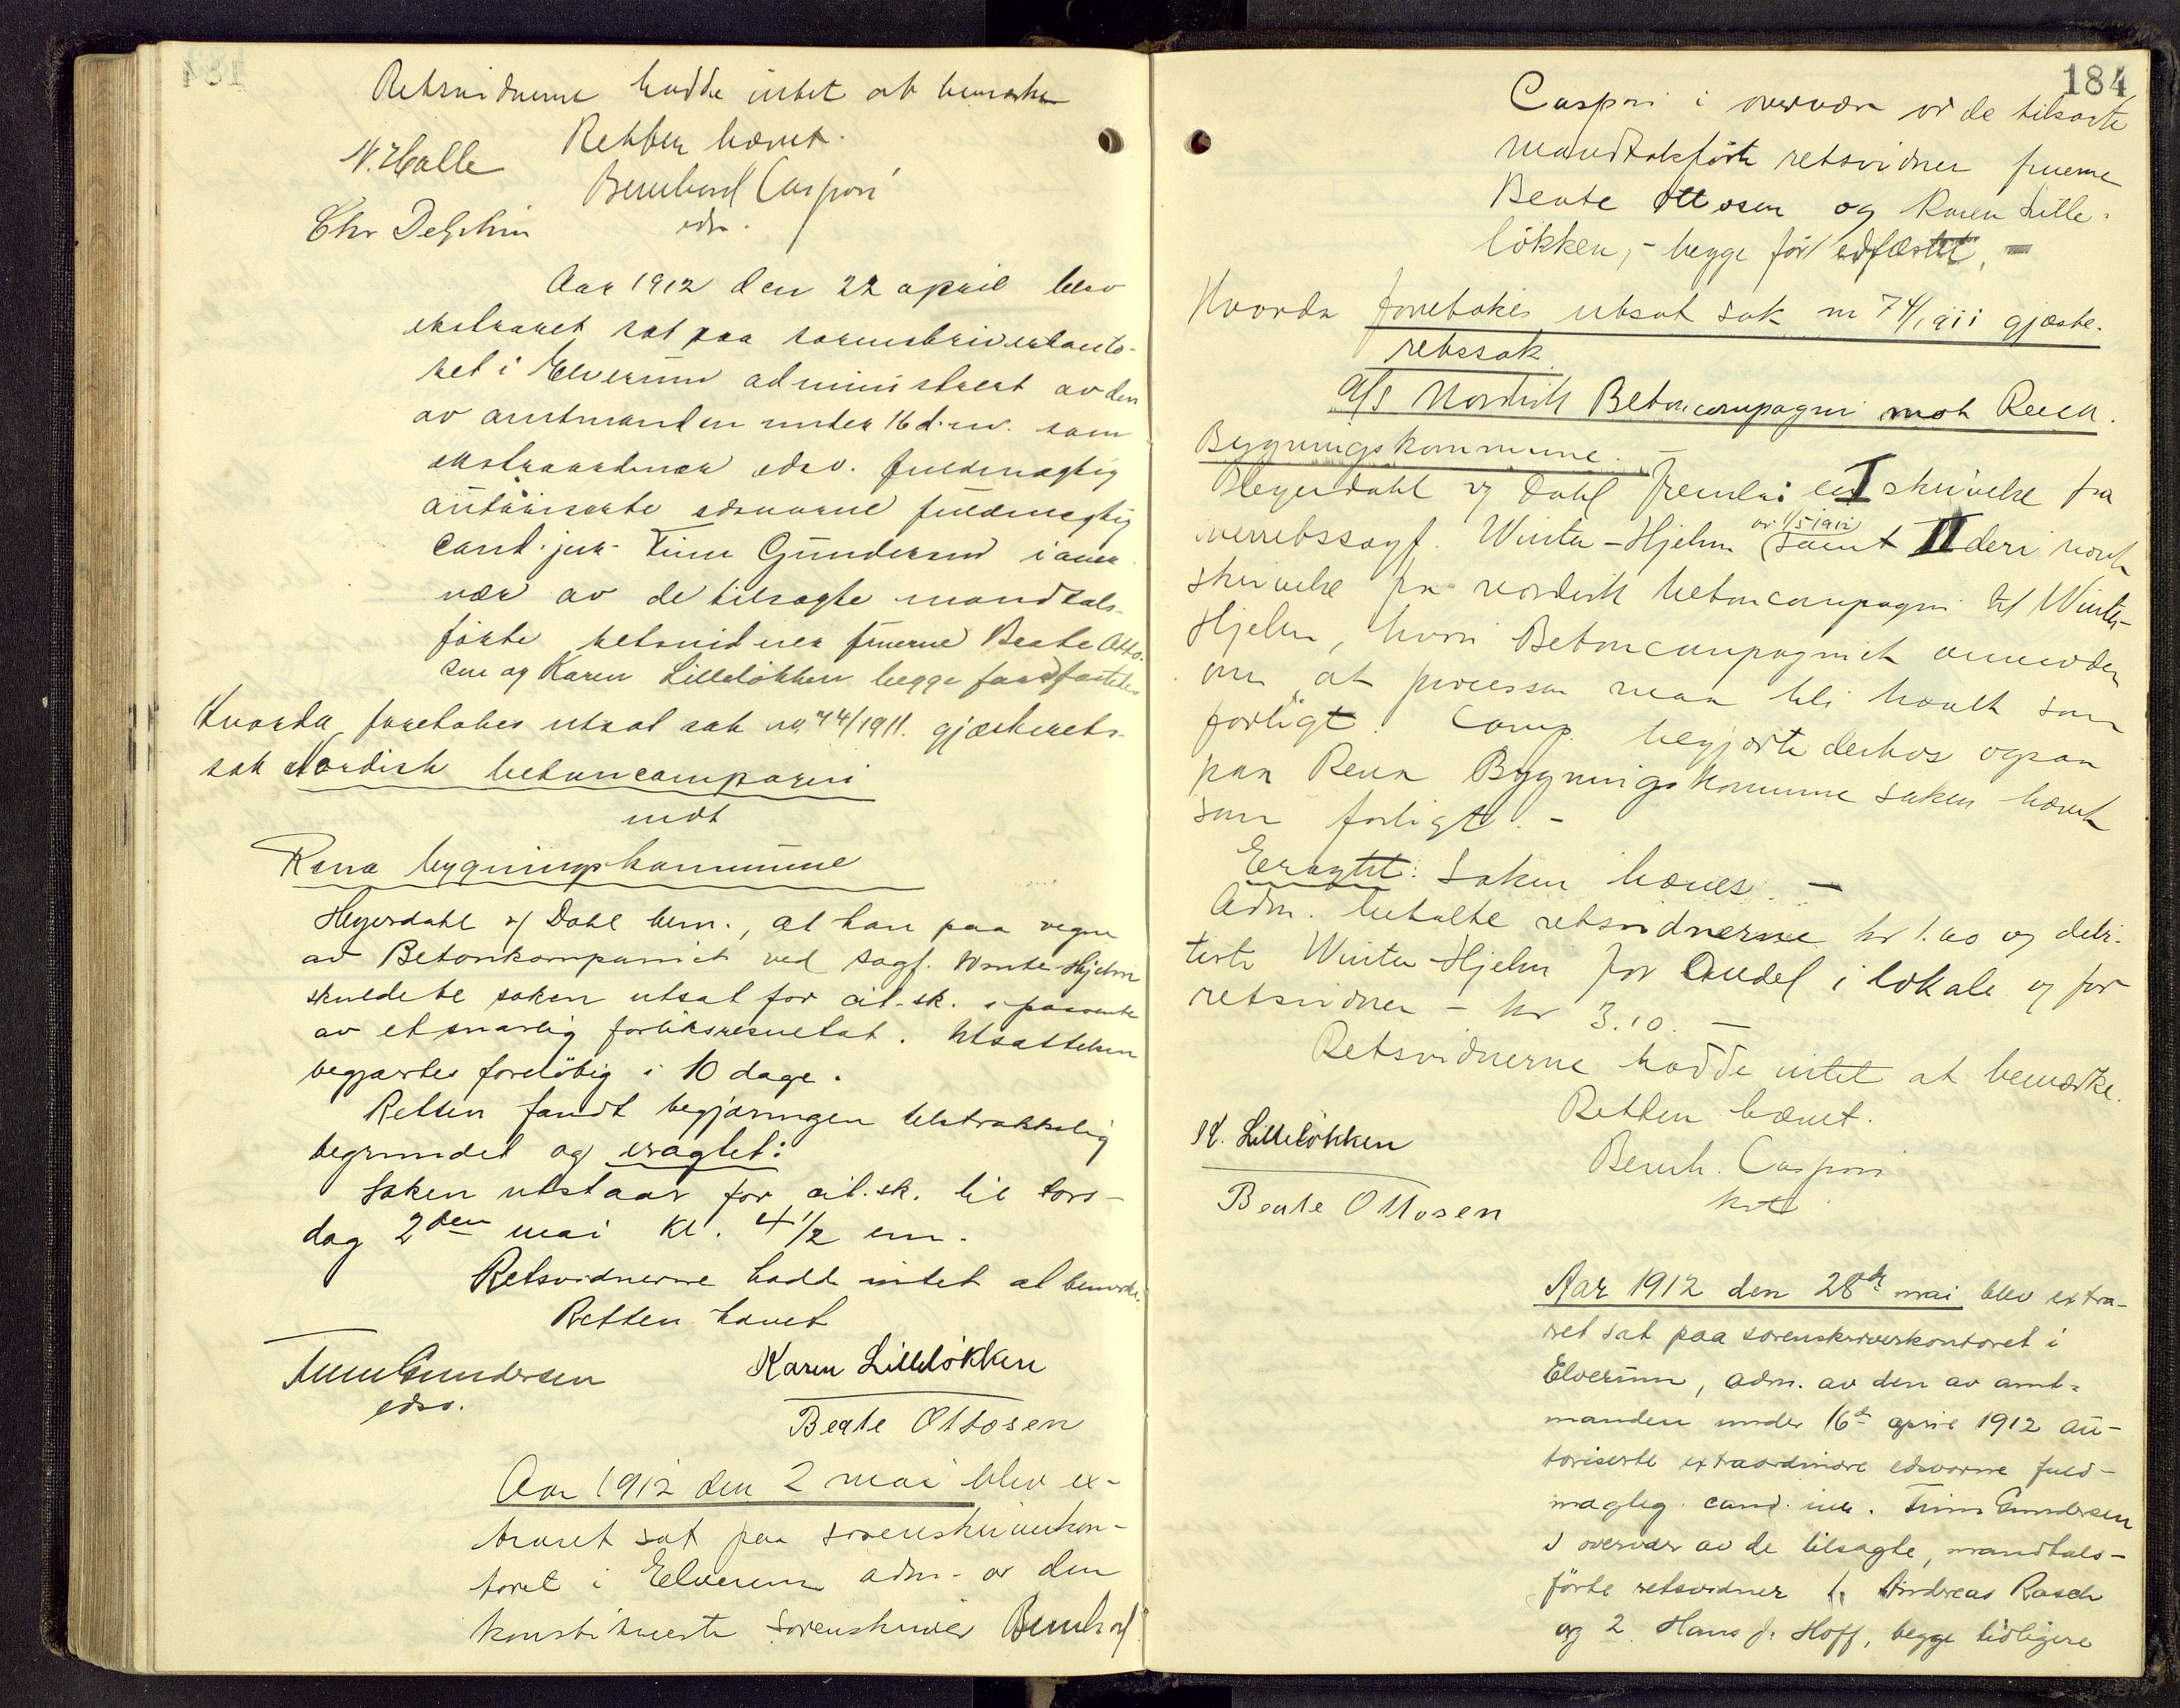 Retsvidnerne hadde intet at bemerke
Retten hævet.
N. Halle
Bernhard Caspari
Chr Delphin
edsv.
Aar 1912 den 22 april blev
ekstraret sat paa sorenskriverkonto-
ret i Elverum administrert av den
av amtmanden under 16 d.m. som
ekstraordinær edsv. fuldmægtig
autoriserte edsvorne fuldmægtig
cand. jur. Finn Gundersen i over
vær av de tilsagte mandtals-
førte retsvidner fruerne Beate Otto-
sen og Karen Lilleløkken begge før edfæstede
Hvorda foretokes utsat sak nr. 74/1911. gjæsterets-
sak Nordisk betoncompagni
mot
Rena bygningskommune
Heyerdahl v/ Dahl bem., at han paa vegne
av Betonkompaniet ved sagf. Winter-Hjelm
skulde be saken utsat for all. sk. i paavente
av et snarlig forliksresultat. Utsættelsen
begjærtes foreløbig i 10 dage.
Retten fandt begjæringen tilstrækkelig
begrundet og eragtet:
Saken utstaar for all. sk. til tors-
dag 2den mai kl. 4½ em.
Retsvidnerne hadde intet at bemerke.
Retten hævet
Finn Gundersen
edsv.
Karen Lilleløkken
Beate Ottosen
Aar 1912 den 2 mai blev ex-
traret sat paa sorenskriverkon-
toret i Elverum adm. av den
konstituerte sorenskriver Bernhard
184
Caspari i overvær av de tilsagte
mandtalsførte retsvidner fruerne
Beate Ottosen og Karen Lille-
løkken, - begge før edfæstet, -
Hvorda foretokes utsat sak nr 74/1911 gjæste-
retssak
A/S Nordisk Betoncompagni mot Rena
Bygningskommune. -
Heyerdahl v/ Dahl fremla: I skrivelse fra
overretssagf. Winter-Hjelm av 1/5 1912 samt II deri nævnte
skrivelse fra nordisk betoncompagni til Winter-
Hjelm, hvori Betoncompagniet anmoder
om at processen maa bli hævet som
forligt. Comp. begjærte derhos ogsaa
paa Rena Bygningskommune saken hævet
som forligt. -
Eragtet: Saken hæves. -
Adm. betalte retsvidnerne kr 1.60 og debi-
terte Winter-Hjelm for Andel i lokale og for
retsvidner - kr 3.10. -
Retsvidnerne hadde intet at bemærke.
Retten hævet.
K. Lilleløkken
Bernh. Caspari
kst
Beate Ottosen
Aar 1912 den 28de mai blev extra-
ret sat paa sorenskriverkontoret i
Elverum, adm. av den av amt-
manden under 16de april 1912 au-
toriserte extraordinære edsvorne fuld-
mægtig cand. jur. Finn Gundersen
i overvær av de tilsagte, mandtals-
førte retsvidner 1. Andreas Rasch
og 2. Hans J. Hoff, begge tidligere